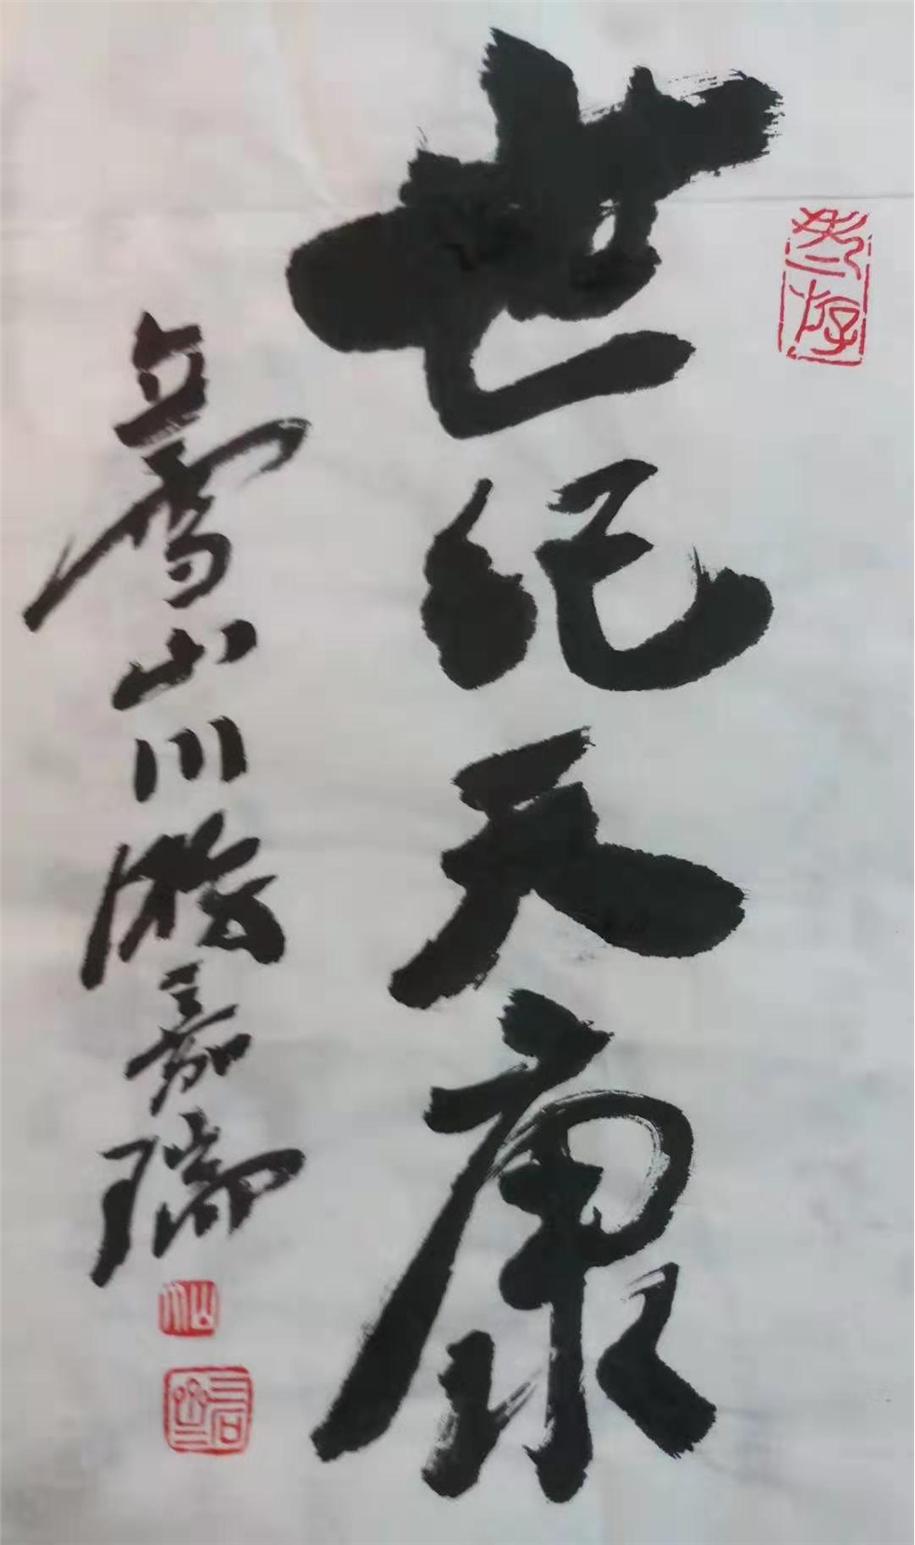 世纪天康
山川游嘉瑞